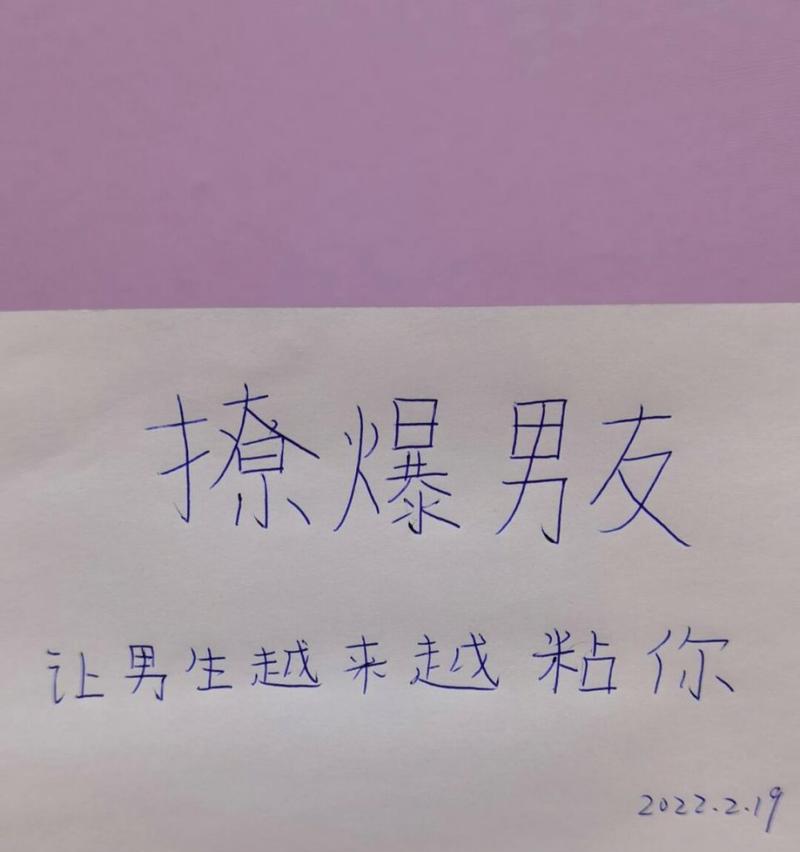 撩爆男友
让男生越来越粘你
2022.2.19